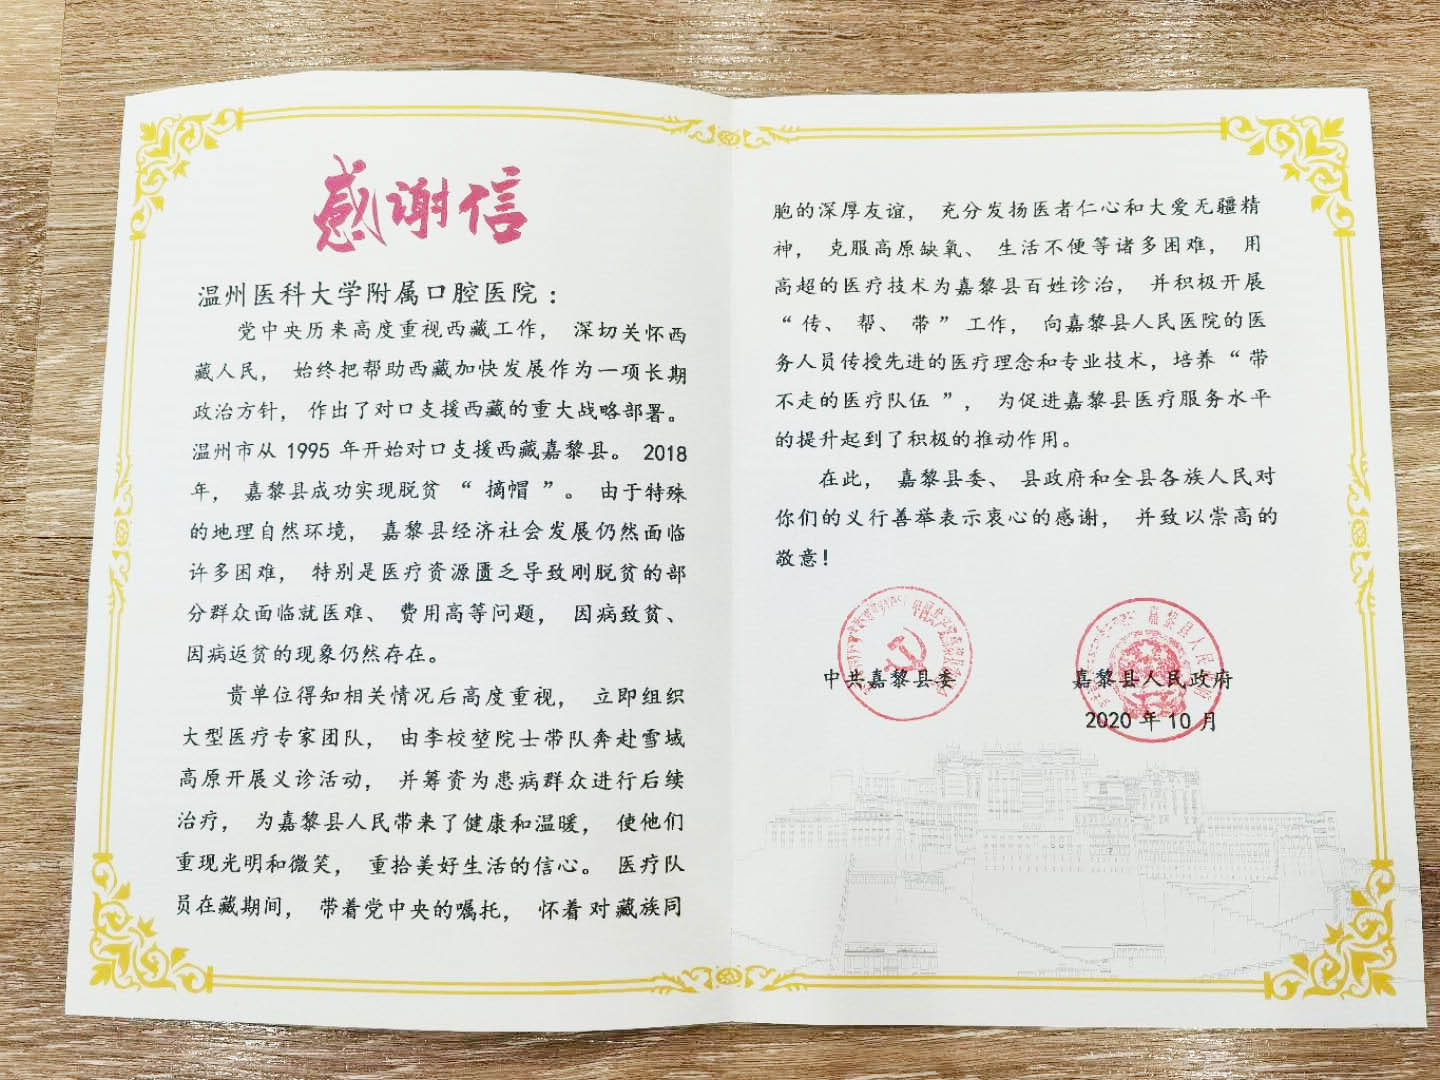 感谢信
温州医科大学附属口腔医院：
党中央历来高度重视西藏工作，深切关怀西
藏人民，始终把帮助西藏加快发展作为一项长期
政治方针，作出了对口支援西藏的重大战略部署。
温州市从 1995 年开始对口支援西藏嘉黎县。2018
年，嘉黎县成功实现脱贫“摘帽”。由于特殊
的地理自然环境，嘉黎县经济社会发展仍然面临
许多困难，特别是医疗资源匮乏导致刚脱贫的部
分群众面临就医难、费用高等问题，因病致贫、
因病返贫的现象仍然存在。
贵单位得知相关情况后高度重视，立即组织
大型医疗专家团队，由李校堃院士带队奔赴雪域
高原开展义诊活动，并筹资为患病群众进行后续
治疗，为嘉黎县人民带来了健康和温暖，使他们
重现光明和微笑，重拾美好生活的信心。医疗队
员在藏期间，带着党中央的嘱托，怀着对藏族同
胞的深厚友谊，充分发扬医者仁心和大爱无疆精
神，克服高原缺氧、生活不便等诸多困难，用
高超的医疗技术为嘉黎县百姓诊治，并积极开展
“传、帮、带”工作，向嘉黎县人民医院的医
务人员传授先进的医疗理念和专业技术，培养“带
不走的医疗队伍”，为促进嘉黎县医疗服务水平
的提升起到了积极的推动作用。
在此，嘉黎县委、县政府和全县各族人民对
你们的义行善举表示衷心的感谢，并致以崇高的
敬意！
中共嘉黎县委 嘉黎县人民政府
2020 年 10 月